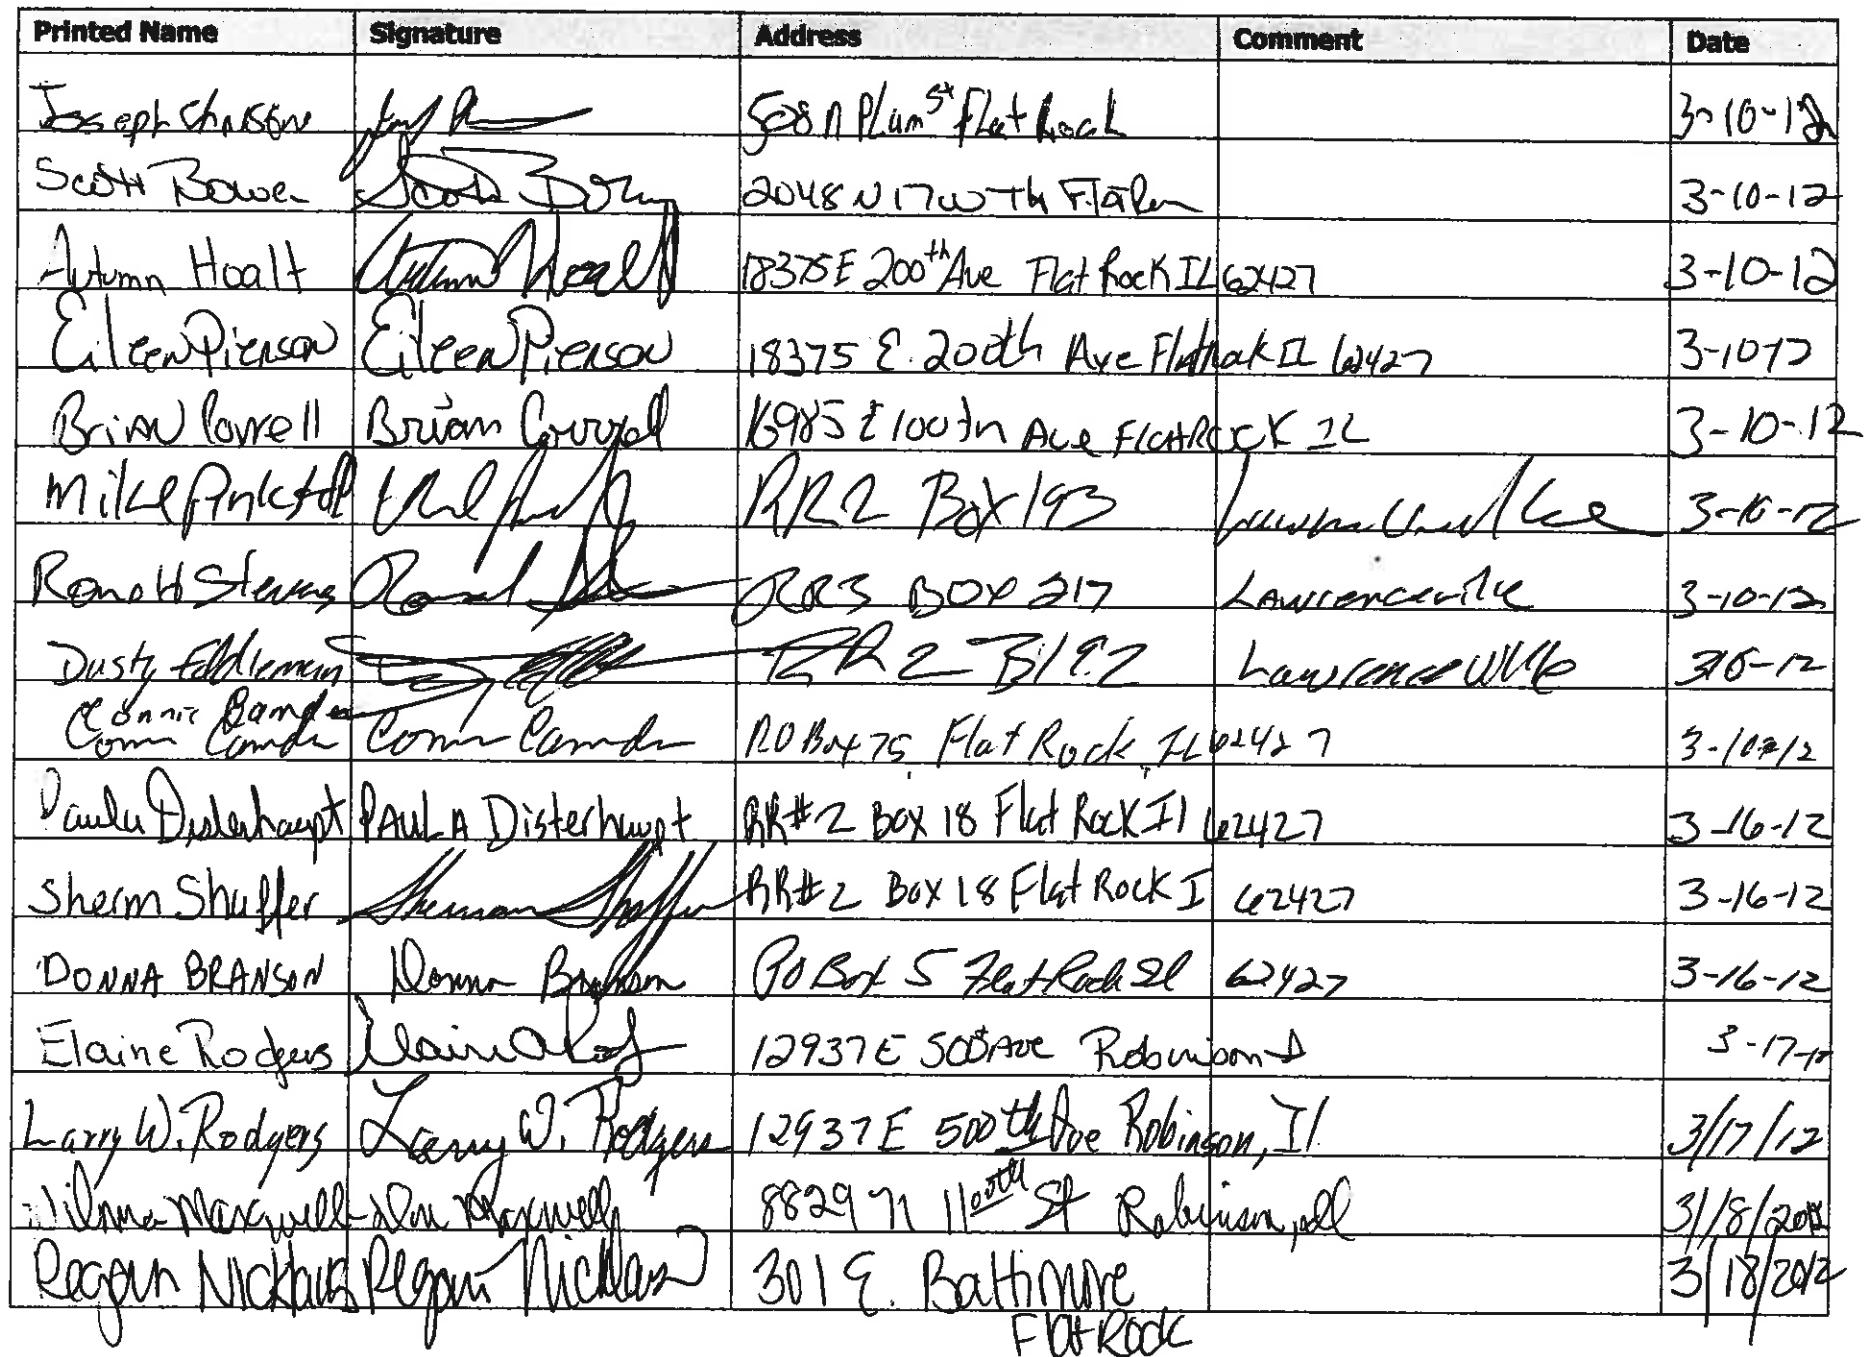 Printed Name Signature Address Comment Date
Joseph 508 N Plum St Flat Rock 3-10-12
Scott Bowen Scott 2048 N 3-10-12
Autumn Hoalt Autumn Hoalt 18375 E 200th Ave Flat Rock IL 62427 3-10-12
Eileen Pierson Eileen Pierson 18375 E. 200th Ave Flatrok IL 62427 3-10-12
Brian Correll Brian Correll 16985 E 100th Ave Flat Rock IL 3-10-12
Mike RR2 Box 193 3-10-12
Ronald Stevens Ronald RR3 BOX 217 Lawrenceville 3-10-12
Dusty RR 2 B192 Lawrenceville 3-10-12
Connie
Camden Camden PO Box 75, Flat Rock, IL 62427 3-10-12
Paula Disterhaupt PAULA Disterhaupt RR#2 Box 18 Flat Rock Il 62427 3-16-12
Sherm Shaffer Sherman Shaffer RR#2 Box 18 Flat Rock I 62427 3-16-12
DONNA BRANSON Donna Branson PO Box 5 Flat Rock Il 62427 3-16-12
Elaine Rodgers Elaine 12937 E 500th Ave Robinson 3-17-12
Larry W. Rodgers Larry W. Rodgers 12937 E 500th Ave Robinson, Il 3/17/12
Wilma Maxwell Maxwell 8829 N 1100th St Robinson, Ill 3/18/2012
Regan Nicklaus Regan Nicklaus 301 E. Baltimore 3/18/2012
Flat Rock